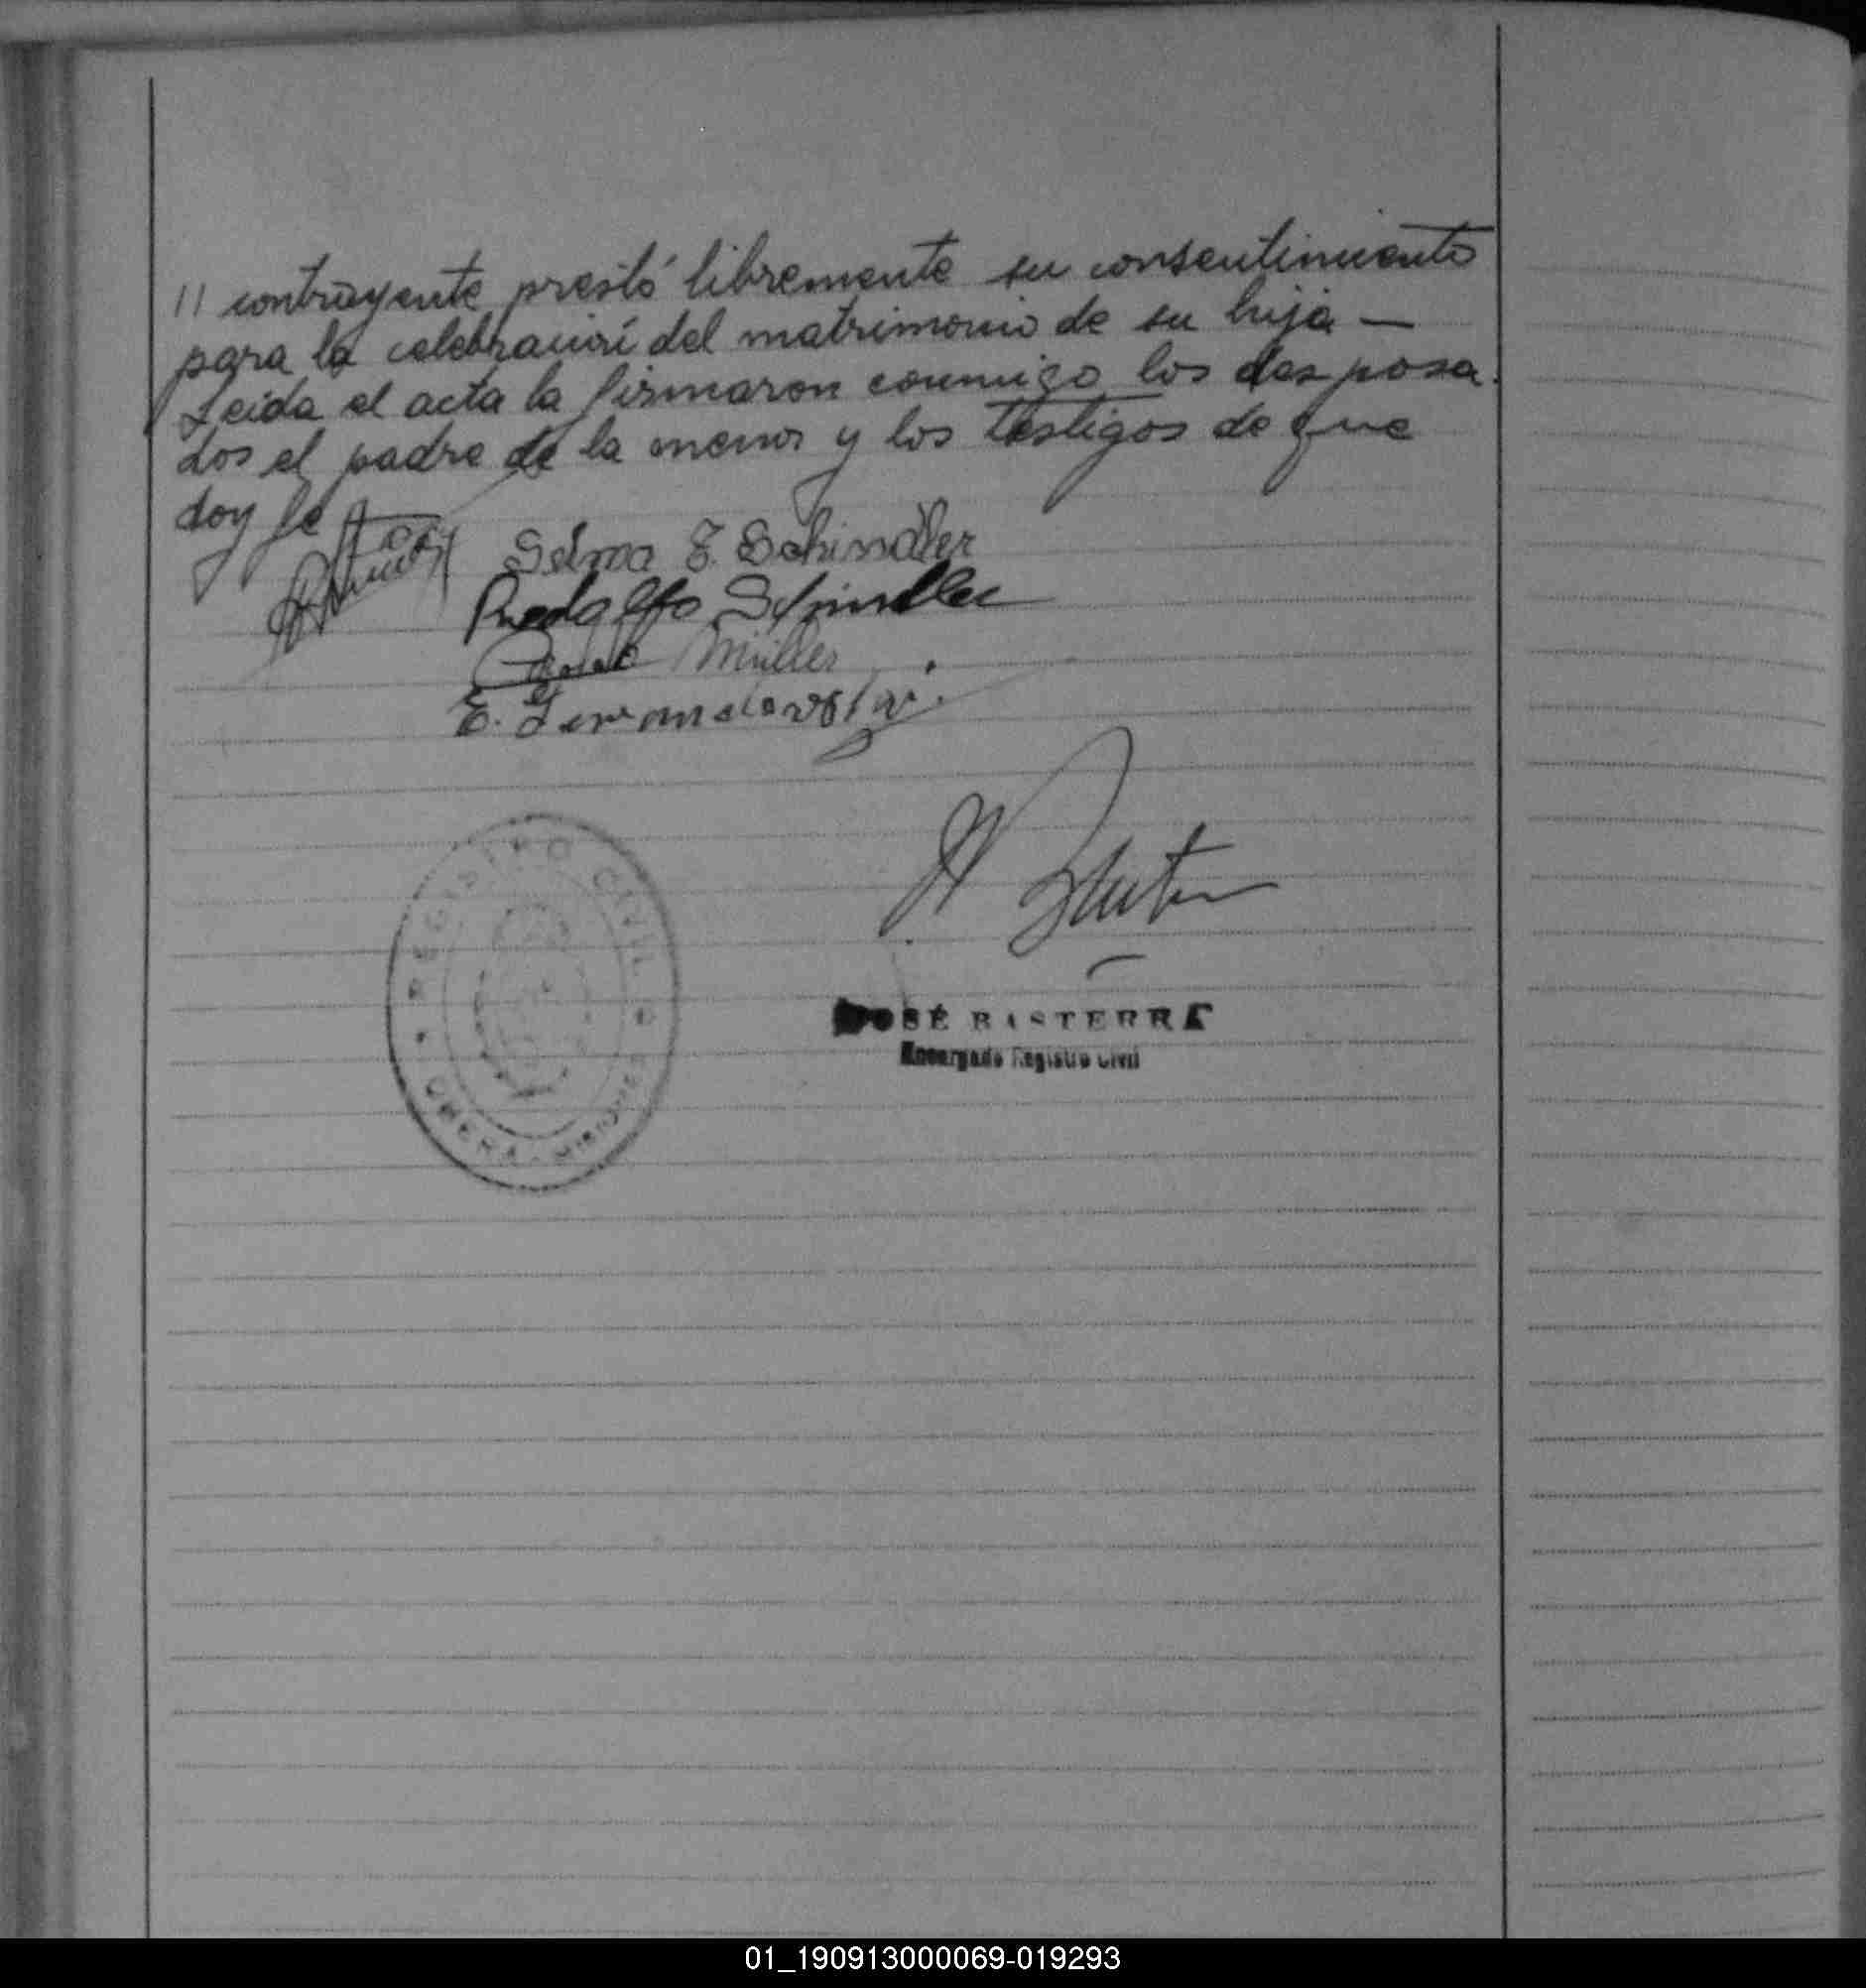 " contrayente prestó libremente su consentimiento
para la celebración del matrimonio de su hija —
Leida el acta la firmaron conmigo los desposa-
dos el padre de la menor y los testigos de que
doy fe
Selma F. Schindler
Rudolffo Schindler
Müller
E.
REGISTRO CIVIL
OBERA - MISIONES
JOSÉ BASTERRA
Encargado Registro Civil
01_190913000069-019293